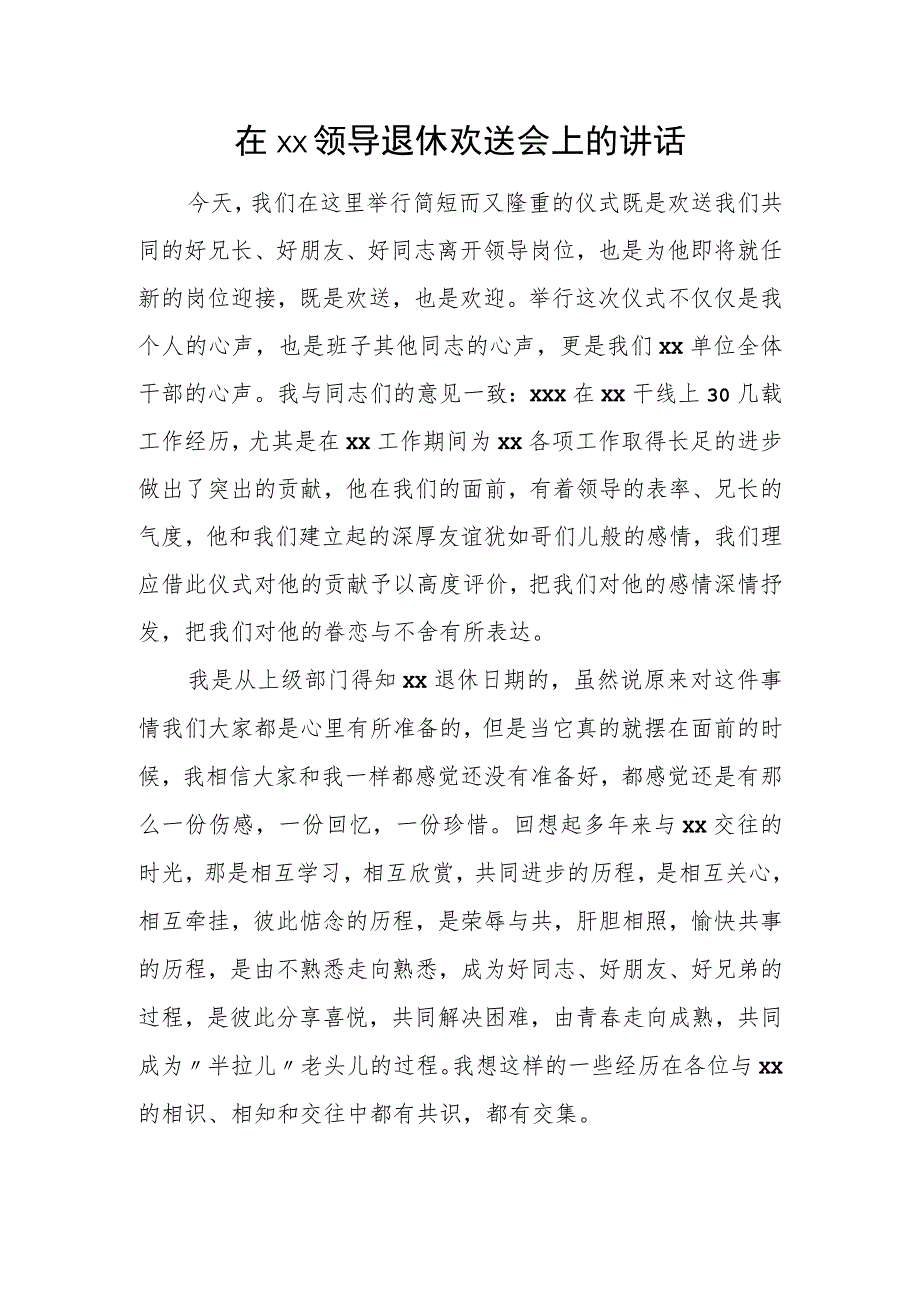 在xx领导退休欢送会上的讲话
今天，我们在这里举行简短而又隆重的仪式既是欢送我们共
同的好兄长、好朋友、好同志离开领导岗位，也是为他即将就任
新的岗位迎接，既是欢送，也是欢迎。举行这次仪式不仅仅是我
个人的心声，也是班子其他同志的心声，更是我们xx单位全体
干部的心声。我与同志们的意见一致：xxx在xx干线上30几载
工作经历，尤其是在xx工作期间为xx各项工作取得长足的进步
做出了突出的贡献，他在我们的面前，有着领导的表率、兄长的
气度，他和我们建立起的深厚友谊犹如哥们儿般的感情，我们理
应借此仪式对他的贡献予以高度评价，把我们对他的感情深情抒
发，把我们对他的眷恋与不舍有所表达。
我是从上级部门得知xx退休日期的，虽然说原来对这件事
情我们大家都是心里有所准备的，但是当它真的就摆在面前的时
候，我相信大家和我一样都感觉还没有准备好，都感觉还是有那
么一份伤感，一份回忆，一份珍惜。回想起多年来与xx交往的
时光，那是相互学习，相互欣赏，共同进步的历程，是相互关心，
相互牵挂，彼此惦念的历程，是荣辱与共，肝胆相照，愉快共事
的历程，是由不熟悉走向熟悉，成为好同志、好朋友、好兄弟的
过程，是彼此分享喜悦，共同解决困难，由青春走向成熟，共同
成为"半拉儿"老头儿的过程。我想这样的一些经历在各位与xx
的相识、相知和交往中都有共识，都有交集。